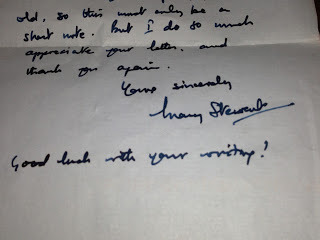 old, so this must only be a
short note. But I do so much
appreciate your letter, and
thank you again.
Yours sincerely
Mary Stewart
Good luck with your writing!